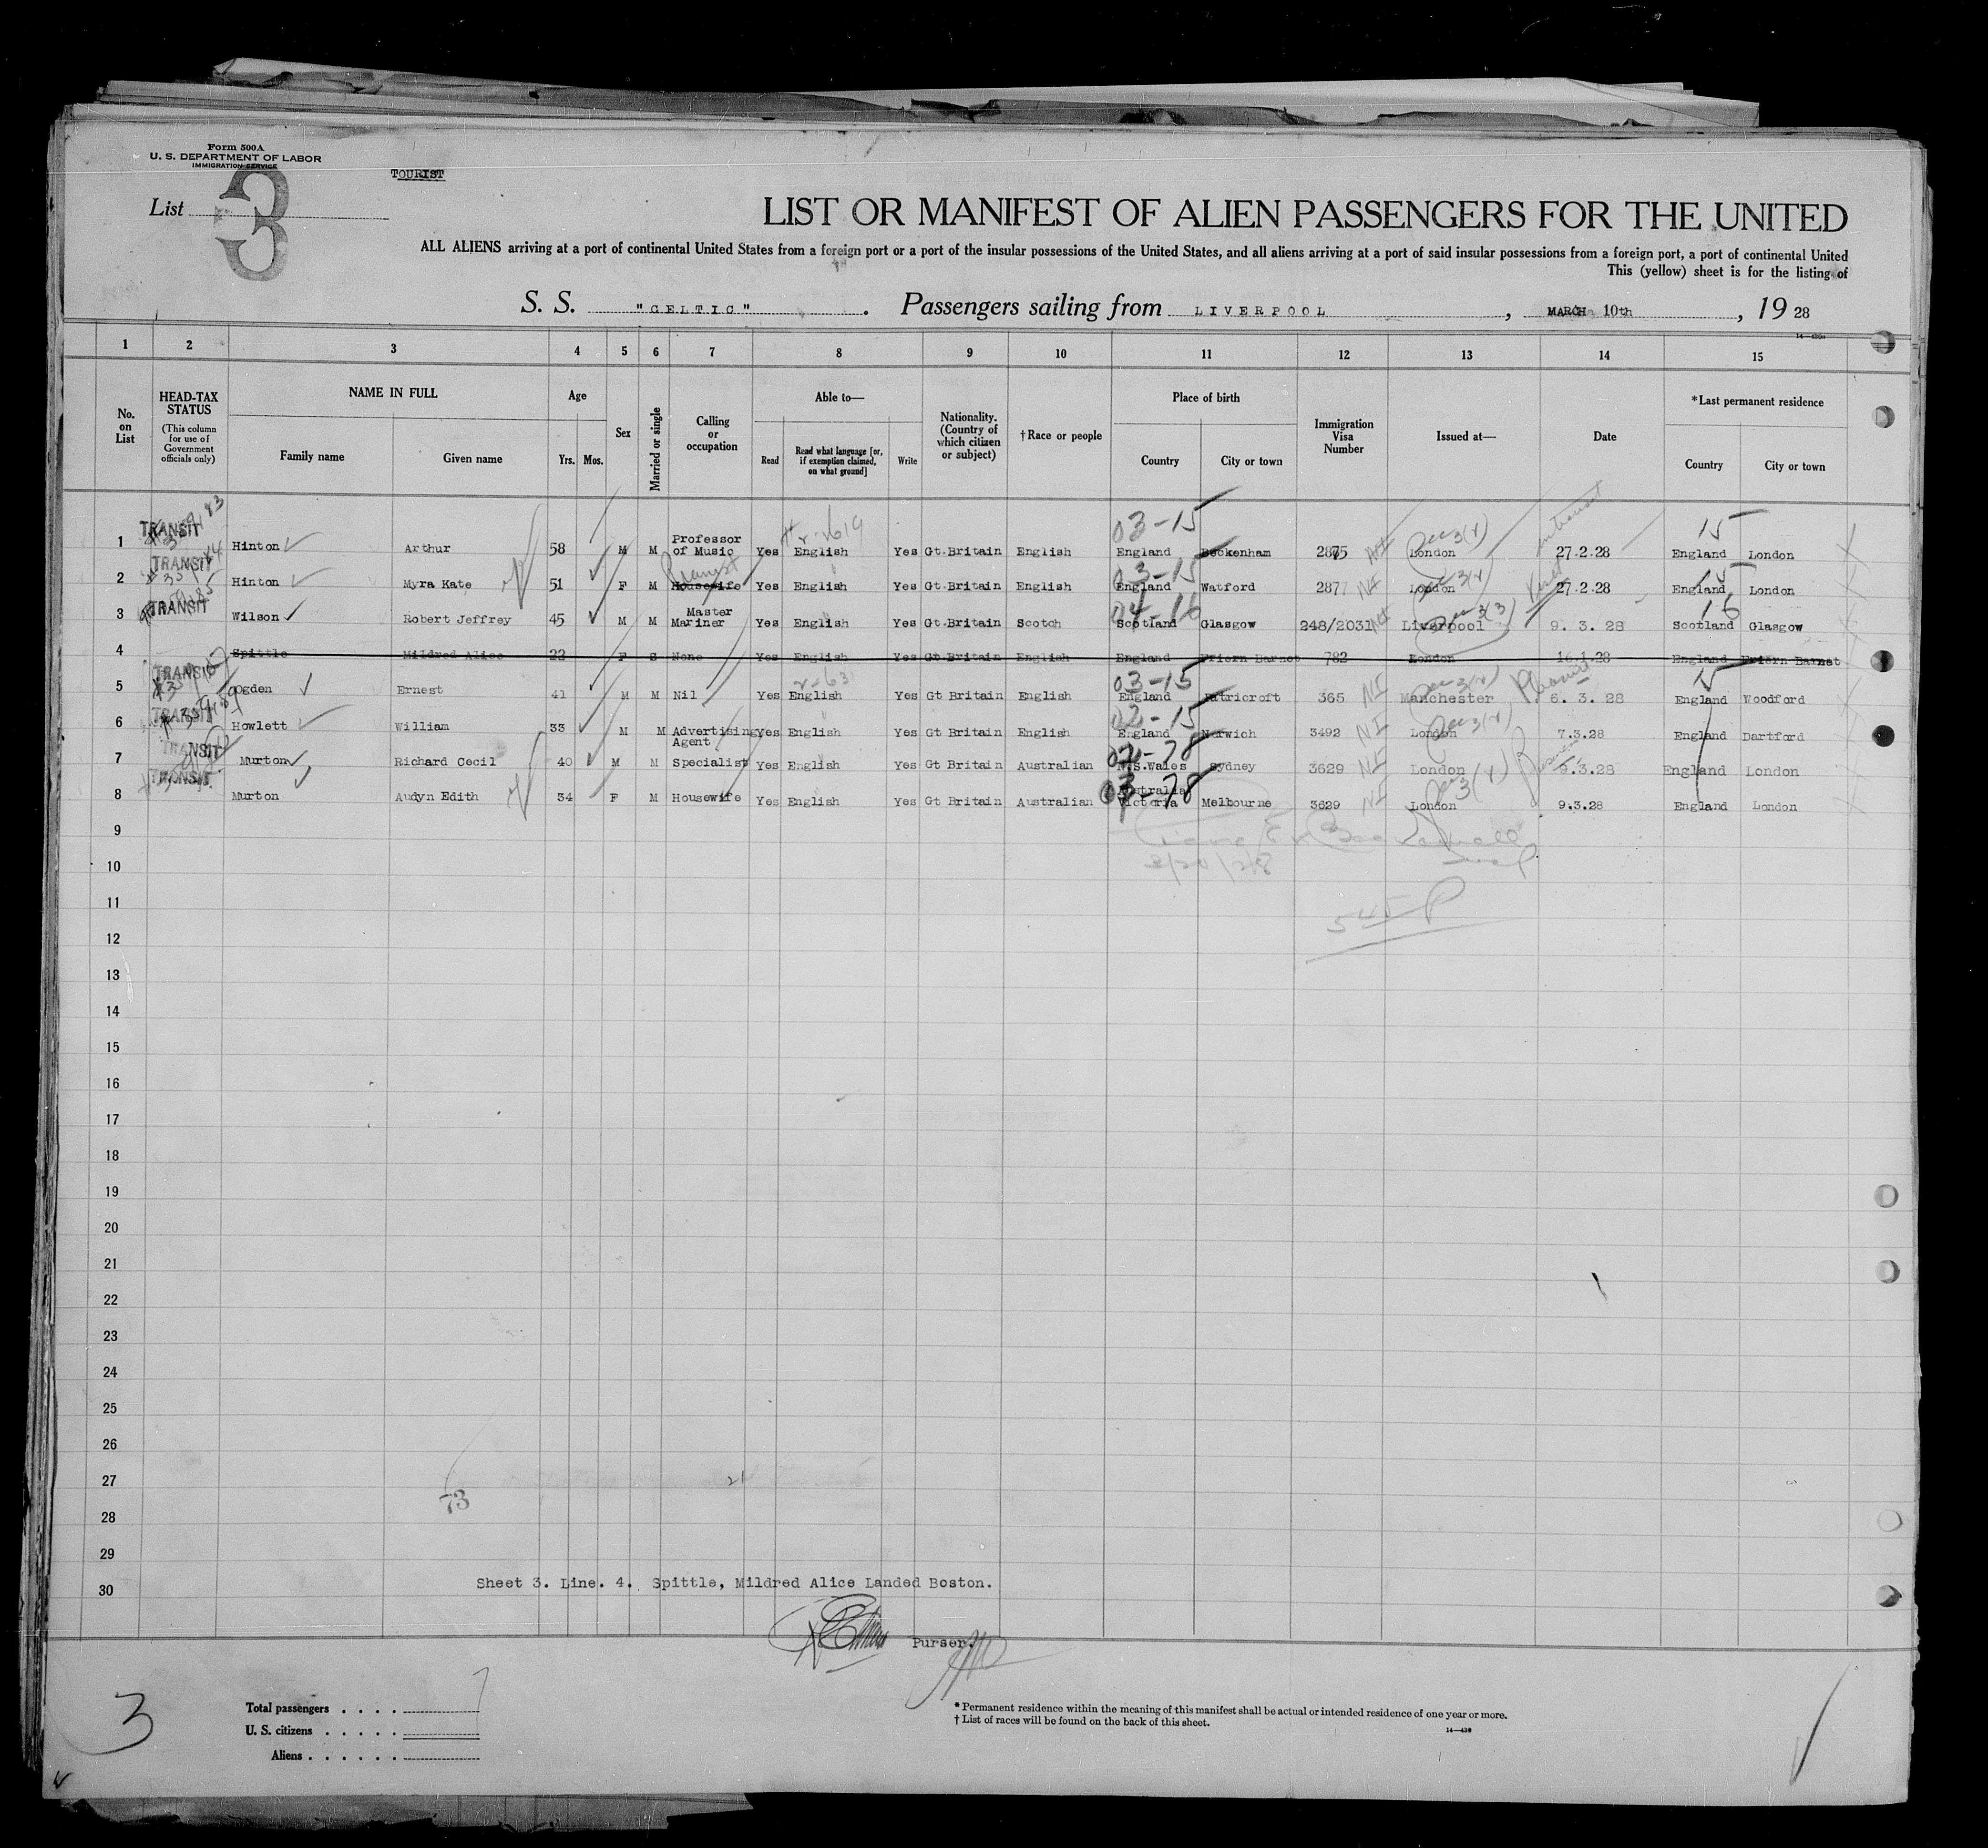 Form 500A
U. S. DEPARTMENT OF LABOR
IMMIGRATION SERVICE
TOURIST
List 3
LIST OR MANIFEST OF ALIEN PASSENGERS FOR THE UNITED
ALL ALIENS arriving at a port of continental United States from a foreign port or a port of the insular possessions of the United States, and all aliens arriving at a port of said insular possessions from a foreign port, a port of continental United
This (yellow) sheet is for the listing of
S. S. "CELTIC". Passengers sailing from LIVERPOOL, MARCH 10th, 19 28
1 2 3 4 5 6 7 8 9 10 11 12 13 14 15
No. on List
HEAD-TAX STATUS (This column for use of Government officials only)
NAME IN FULL Family name Given name
Age Yrs. Mos.
Sex
Married or single
Calling or occupation
Able to— Read Read what language [or, if exemption claimed, on what ground] Write
Nationality. (Country of which citizen or subject)
†Race or people
Place of birth Country City or town
Immigration Visa Number
Issued at—
Date
*Last permanent residence Country City or town
03-15 15
1 TRANSIT Hinton Arthur 58 M M Professor of Music Yes English Yes Gt.Britain English England Beckenham 2875 London 27.2.28 England London
Pianist 03-15 15
2 TRANSIT Hinton Myra Kate 51 F M Housewife Yes English Yes Gt.Britain English England Watford 2877 NI London 27.2.28 England London
04-16 16
3 TRANSIT Wilson Robert Jeffrey 45 M M Master Mariner Yes English Yes Gt.Britain Scotch Scotland Glasgow 248/2031 Liverpool 9. 3. 28 Scotland Glasgow
4 Spittle Mildred Alice 22 F S None Yes English Yes Gt.Britain English England Friern Barnet 782 London 16.1.28 England Friern Barnet
03-15 15
5 TRANSIT Ogden Ernest 41 M M Nil Yes English Yes Gt Britain English England Patricroft 365 NI Manchester 6. 3. 28 England Woodford
02-15
6 TRANSIT Howlett William 33 M M Advertising Agent Yes English Yes Gt Britain English England Norwich 3492 NI London 7.3.28 England Dartford
7 TRANSIT Murton Richard Cecil 40 M M Specialist Yes English Yes Gt Britain Australian N.S.Wales Sydney 3629 NI London 9.3.28 England London
03-78
8 TRANSIT Murton Audyn Edith 34 F M Housewife Yes English Yes Gt Britain Australian Australia Victoria Melbourne 3629 NI London 9.3.28 England London
9
10
11
12
13
14
15
16
17
18
19
20
21
22
23
24
25
26
27
73
28
29
30
Sheet 3. Line. 4. Spittle, Mildred Alice Landed Boston.
Purser.
3
Total passengers . . . . 7
U. S. citizens . . . . .
Aliens . . . . . .
* Permanent residence within the meaning of this manifest shall be actual or intended residence of one year or more.
† List of races will be found on the back of this sheet.
14—430